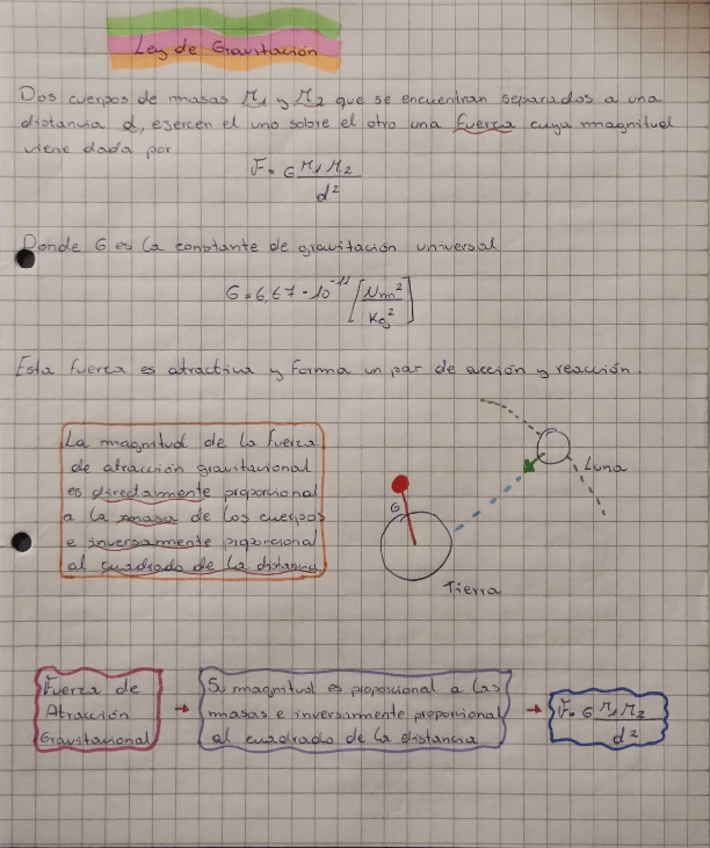 Ley de Gravitación
Dos cuerpos de masas M1 y M2 que se encuentran separados a una
distancia d, ejercen el uno sobre el otro una fuerza cuya magnitud
viene dada por
F = G M1 M2 / d²
Donde G es la constante de gravitación universal
G = 6,67 · 10⁻¹¹ [Nm² / Kg²]
Esta fuerza es atractiva y forma un par de acción y reacción.
La magnitud de la fuerza
de atracción gravitacional
es directamente proporcional
a la masa de los cuerpos
e inversamente proporcional
al cuadrado de la distancia
Luna
G
Tierra
Fuerza de
Atracción
Gravitacional
Su magnitud es proporcional a las
masas e inversamente proporcional
al cuadrado de la distancia
F = G M1 M2 / d²